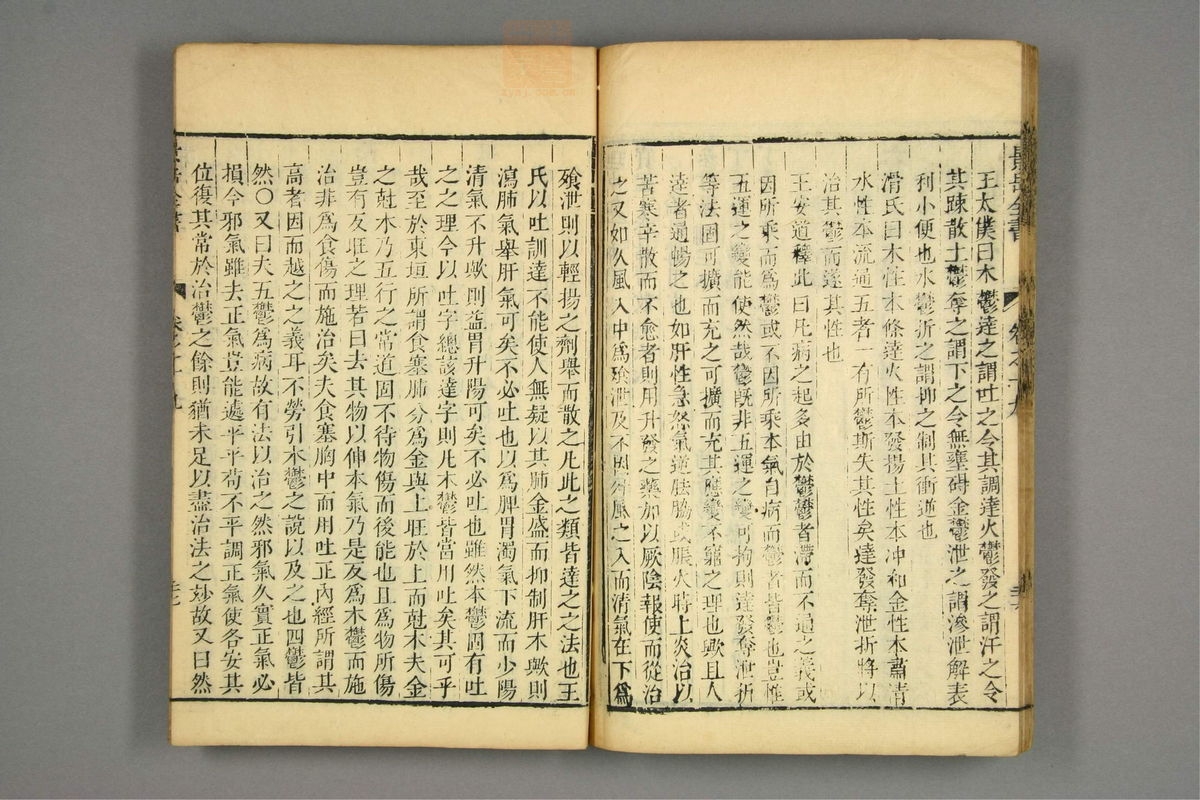 王太僕曰木鬱達之謂吐之令其調達火鬱發之謂汗之令
其疎散土鬱奪之謂下之令無壅碍金鬱泄之謂滲泄解表
利小便也水鬱折之謂抑之制其衝逆也
滑氏曰木性本條達火性本發揚土性本冲和金性本肅清
水性本流通五者一有所鬱斯失其性矣達發奪泄折將以
治其鬱而遂其性也
王安道釋此曰凡病之起多由於鬱鬱者滯而不通之義或
因所乘而爲鬱或不因所乘本氣自病而鬱者皆鬱也豈惟
五運之變能使然哉鬱既非五運之變可拘則達發奪泄折
等法固可擴而充之可擴而充其應變不窮之理也歟且人
達者通暢之也如肝性急怒氣逆胠脇或脹火時上炎治以
苦寒辛散而不愈者則用升發之藥加以厥陰報使而從治
之又如久風入中爲飱泄及不因外風之入而清氣在下爲
飱泄則以輕揚之劑舉而散之凡此之類皆達之之法也王
氏以吐訓達不能使人無疑以其肺金盛而抑制肝木歟則
瀉肺氣舉肝氣可矣不必吐也以爲脾胃濁氣下流而少陽
清氣不升歟則益胃升陽可矣不必吐也雖然木鬱固有吐
之之理今以吐字總該達字則凡木鬱皆當用吐矣其可乎
哉至於東垣所謂食塞肺分爲金與土旺於上而尅木夫金
之尅木乃五行之常道固不待物傷而後能也且爲物所傷
豈有反旺之理若曰去其物以伸木氣乃是反爲木鬱而施
治非爲食傷而施治矣夫食塞胸中而用吐正內經所謂其
高者因而越之之義耳不勞引木鬱之說以及之也四鬱皆
然〇又曰夫五鬱爲病故有法以治之然邪氣久實正氣必
損令邪氣雖去正氣豈能遽平乎苟不平調正氣使各安其
位復其常於治鬱之餘則猶未足以盡治法之妙故又曰然